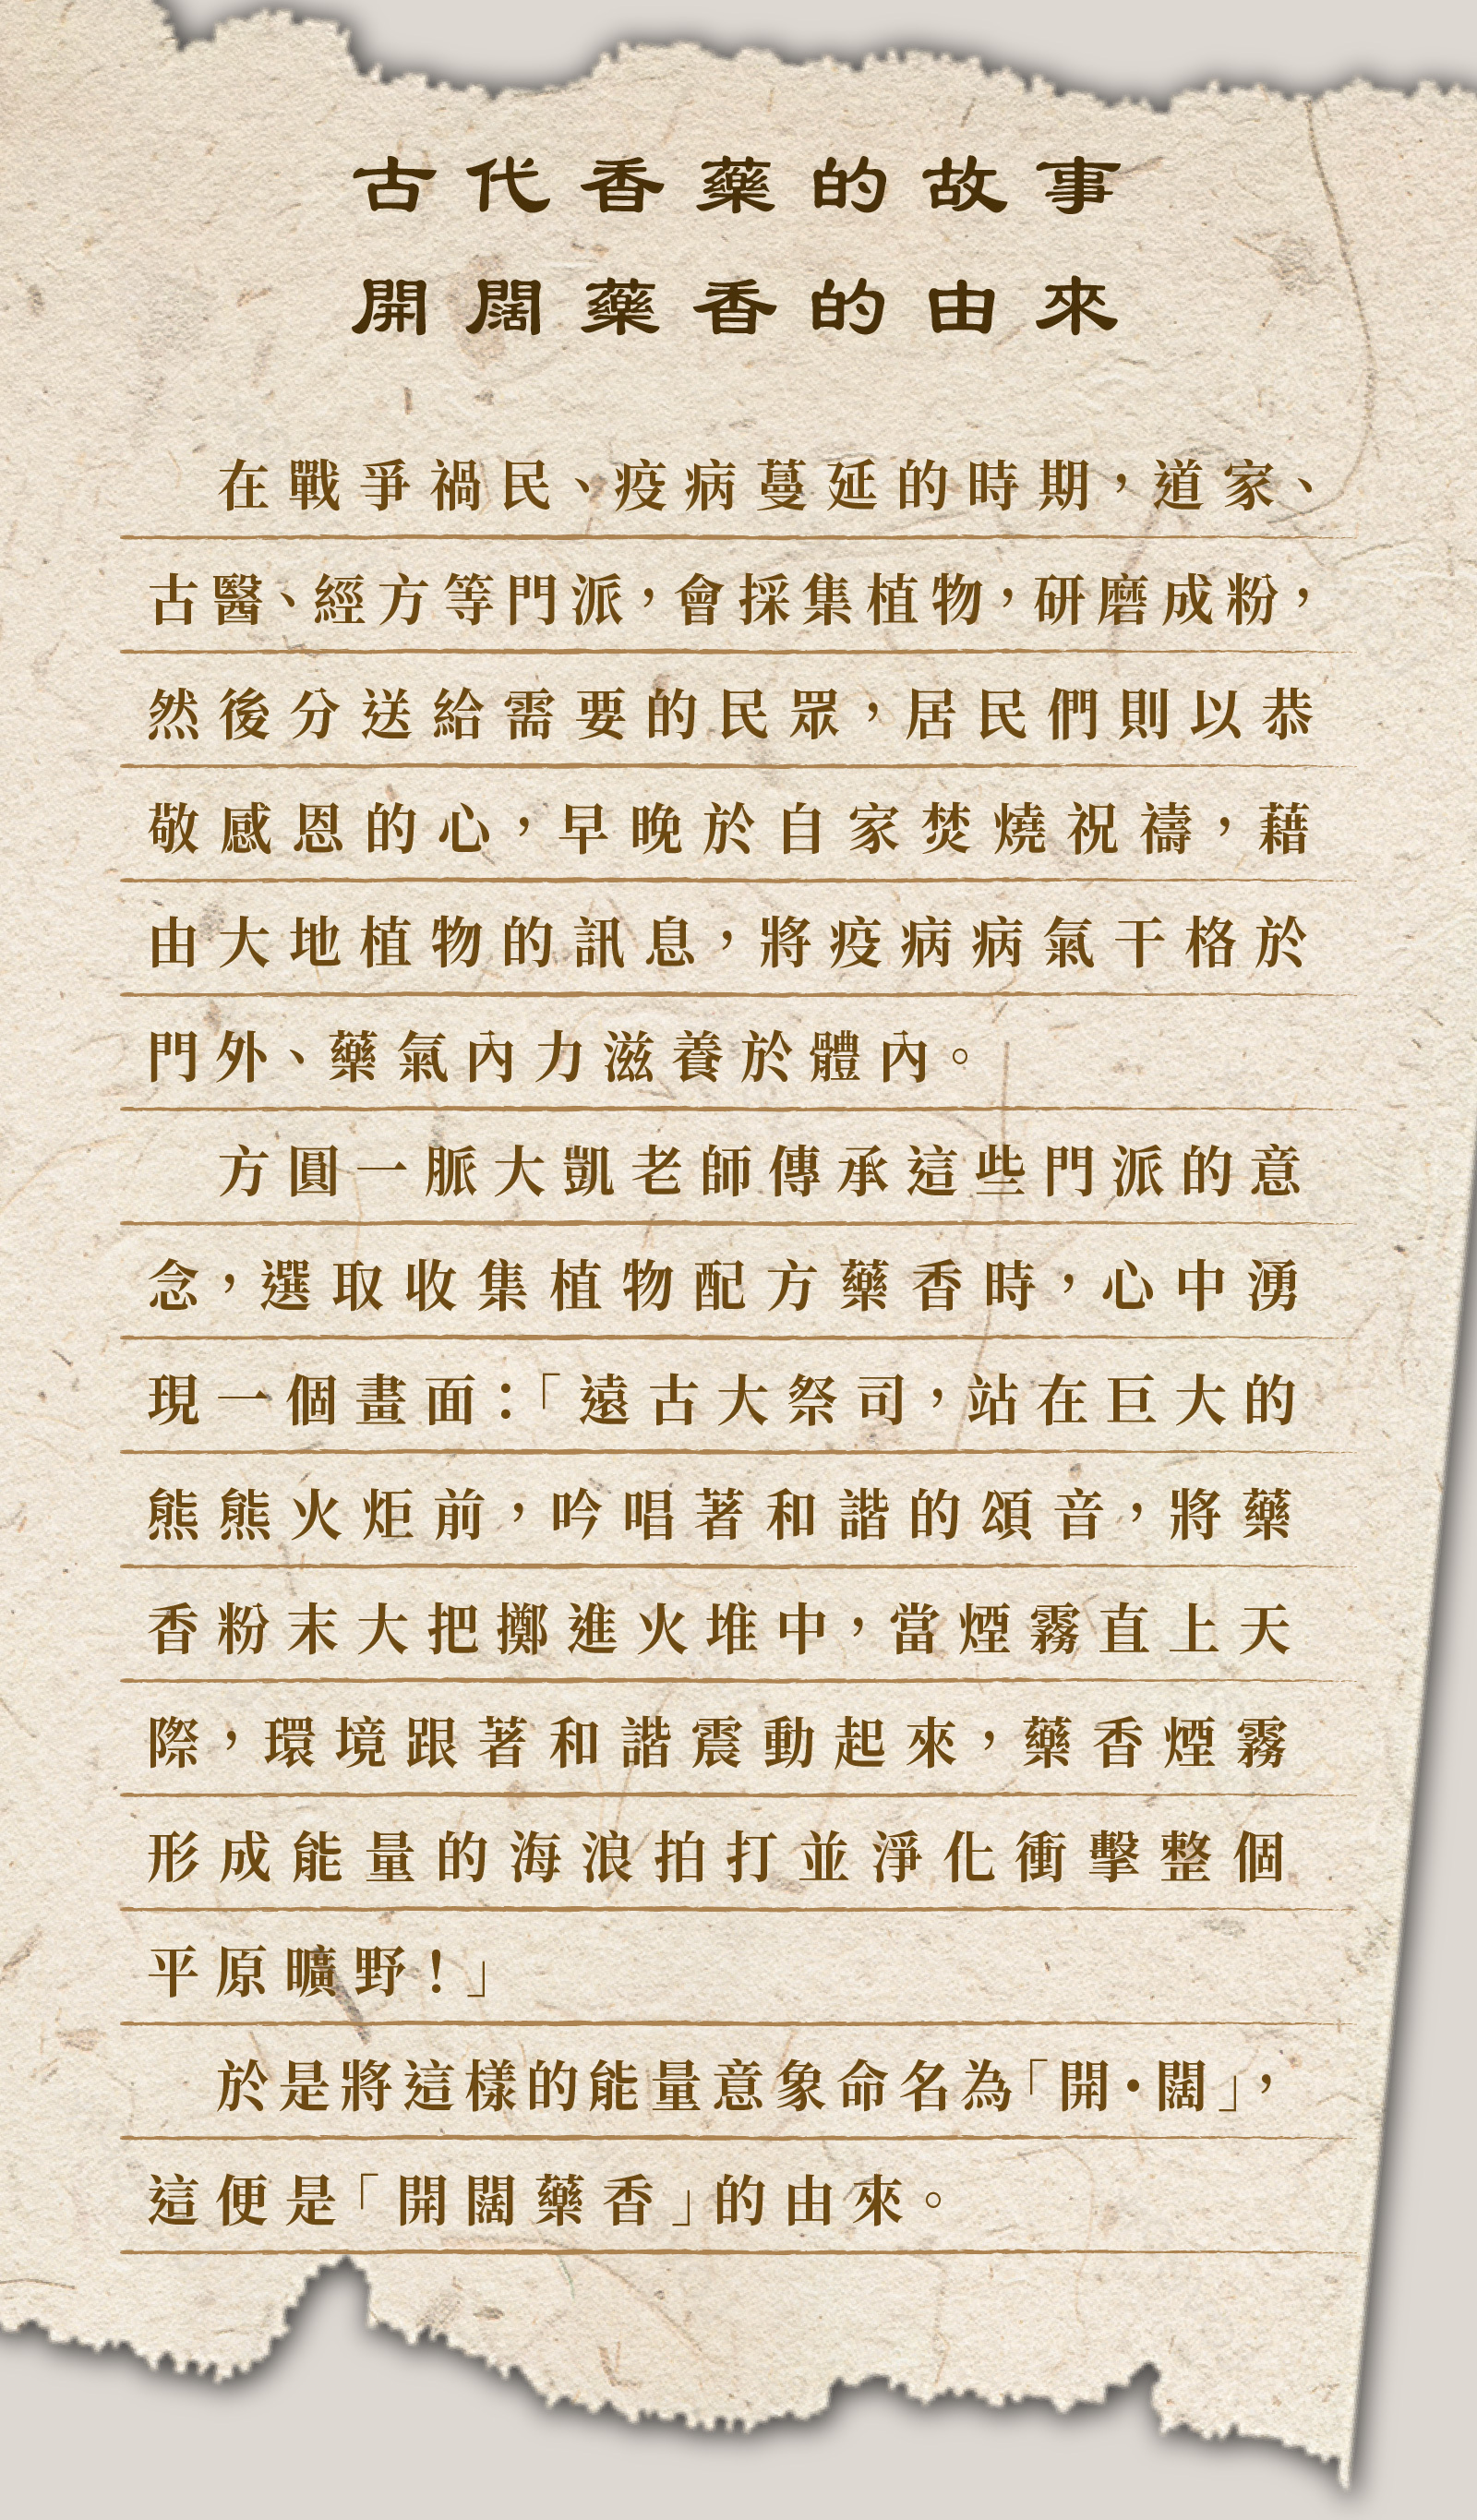 古代香藥的故事
開闊藥香的由來
在戰爭禍民、疫病蔓延的時期，道家、
古醫、經方等門派，會採集植物，研磨成粉，
然後分送給需要的民眾，居民們則以恭
敬感恩的心，早晚於自家焚燒祝禱，藉
由大地植物的訊息，將疫病病氣干格於
門外、藥氣內力滋養於體內。
方圓一脈大凱老師傳承這些門派的意
念，選取收集植物配方藥香時，心中湧
現一個畫面：「遠古大祭司，站在巨大的
熊熊火炬前，吟唱著和諧的頌音，將藥
香粉末大把擲進火堆中，當煙霧直上天
際，環境跟著和諧震動起來，藥香煙霧
形成能量的海浪拍打並淨化衝擊整個
平原曠野！」
於是將這樣的能量意象命名為「開•闊」，
這便是「開闊藥香」的由來。